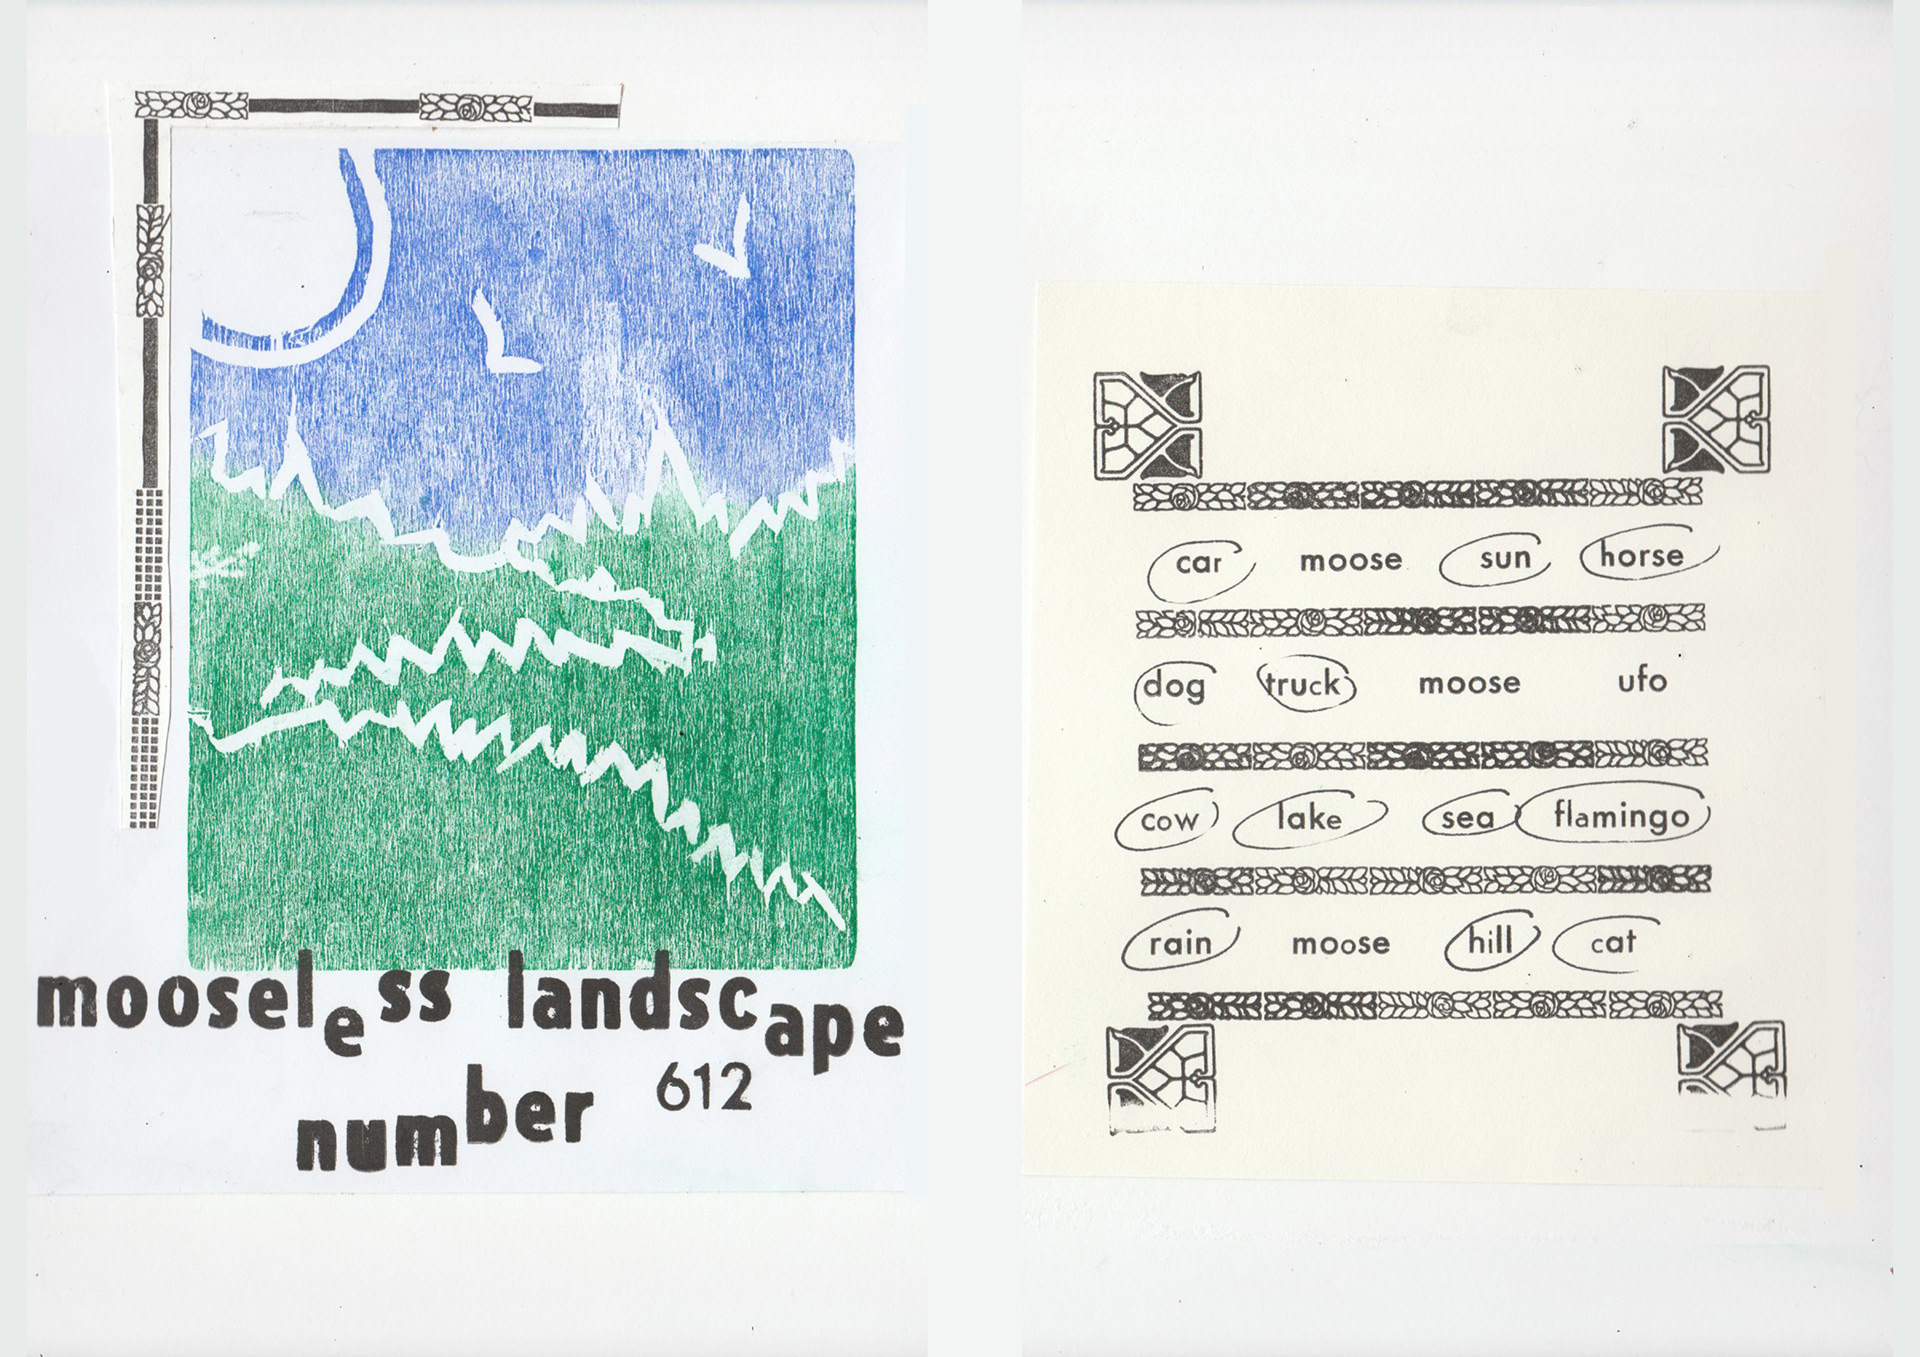 mooseless landscape
number 612
car moose sun horse
dog truck moose ufo
cow lake sea flamingo
rain moose hill cat